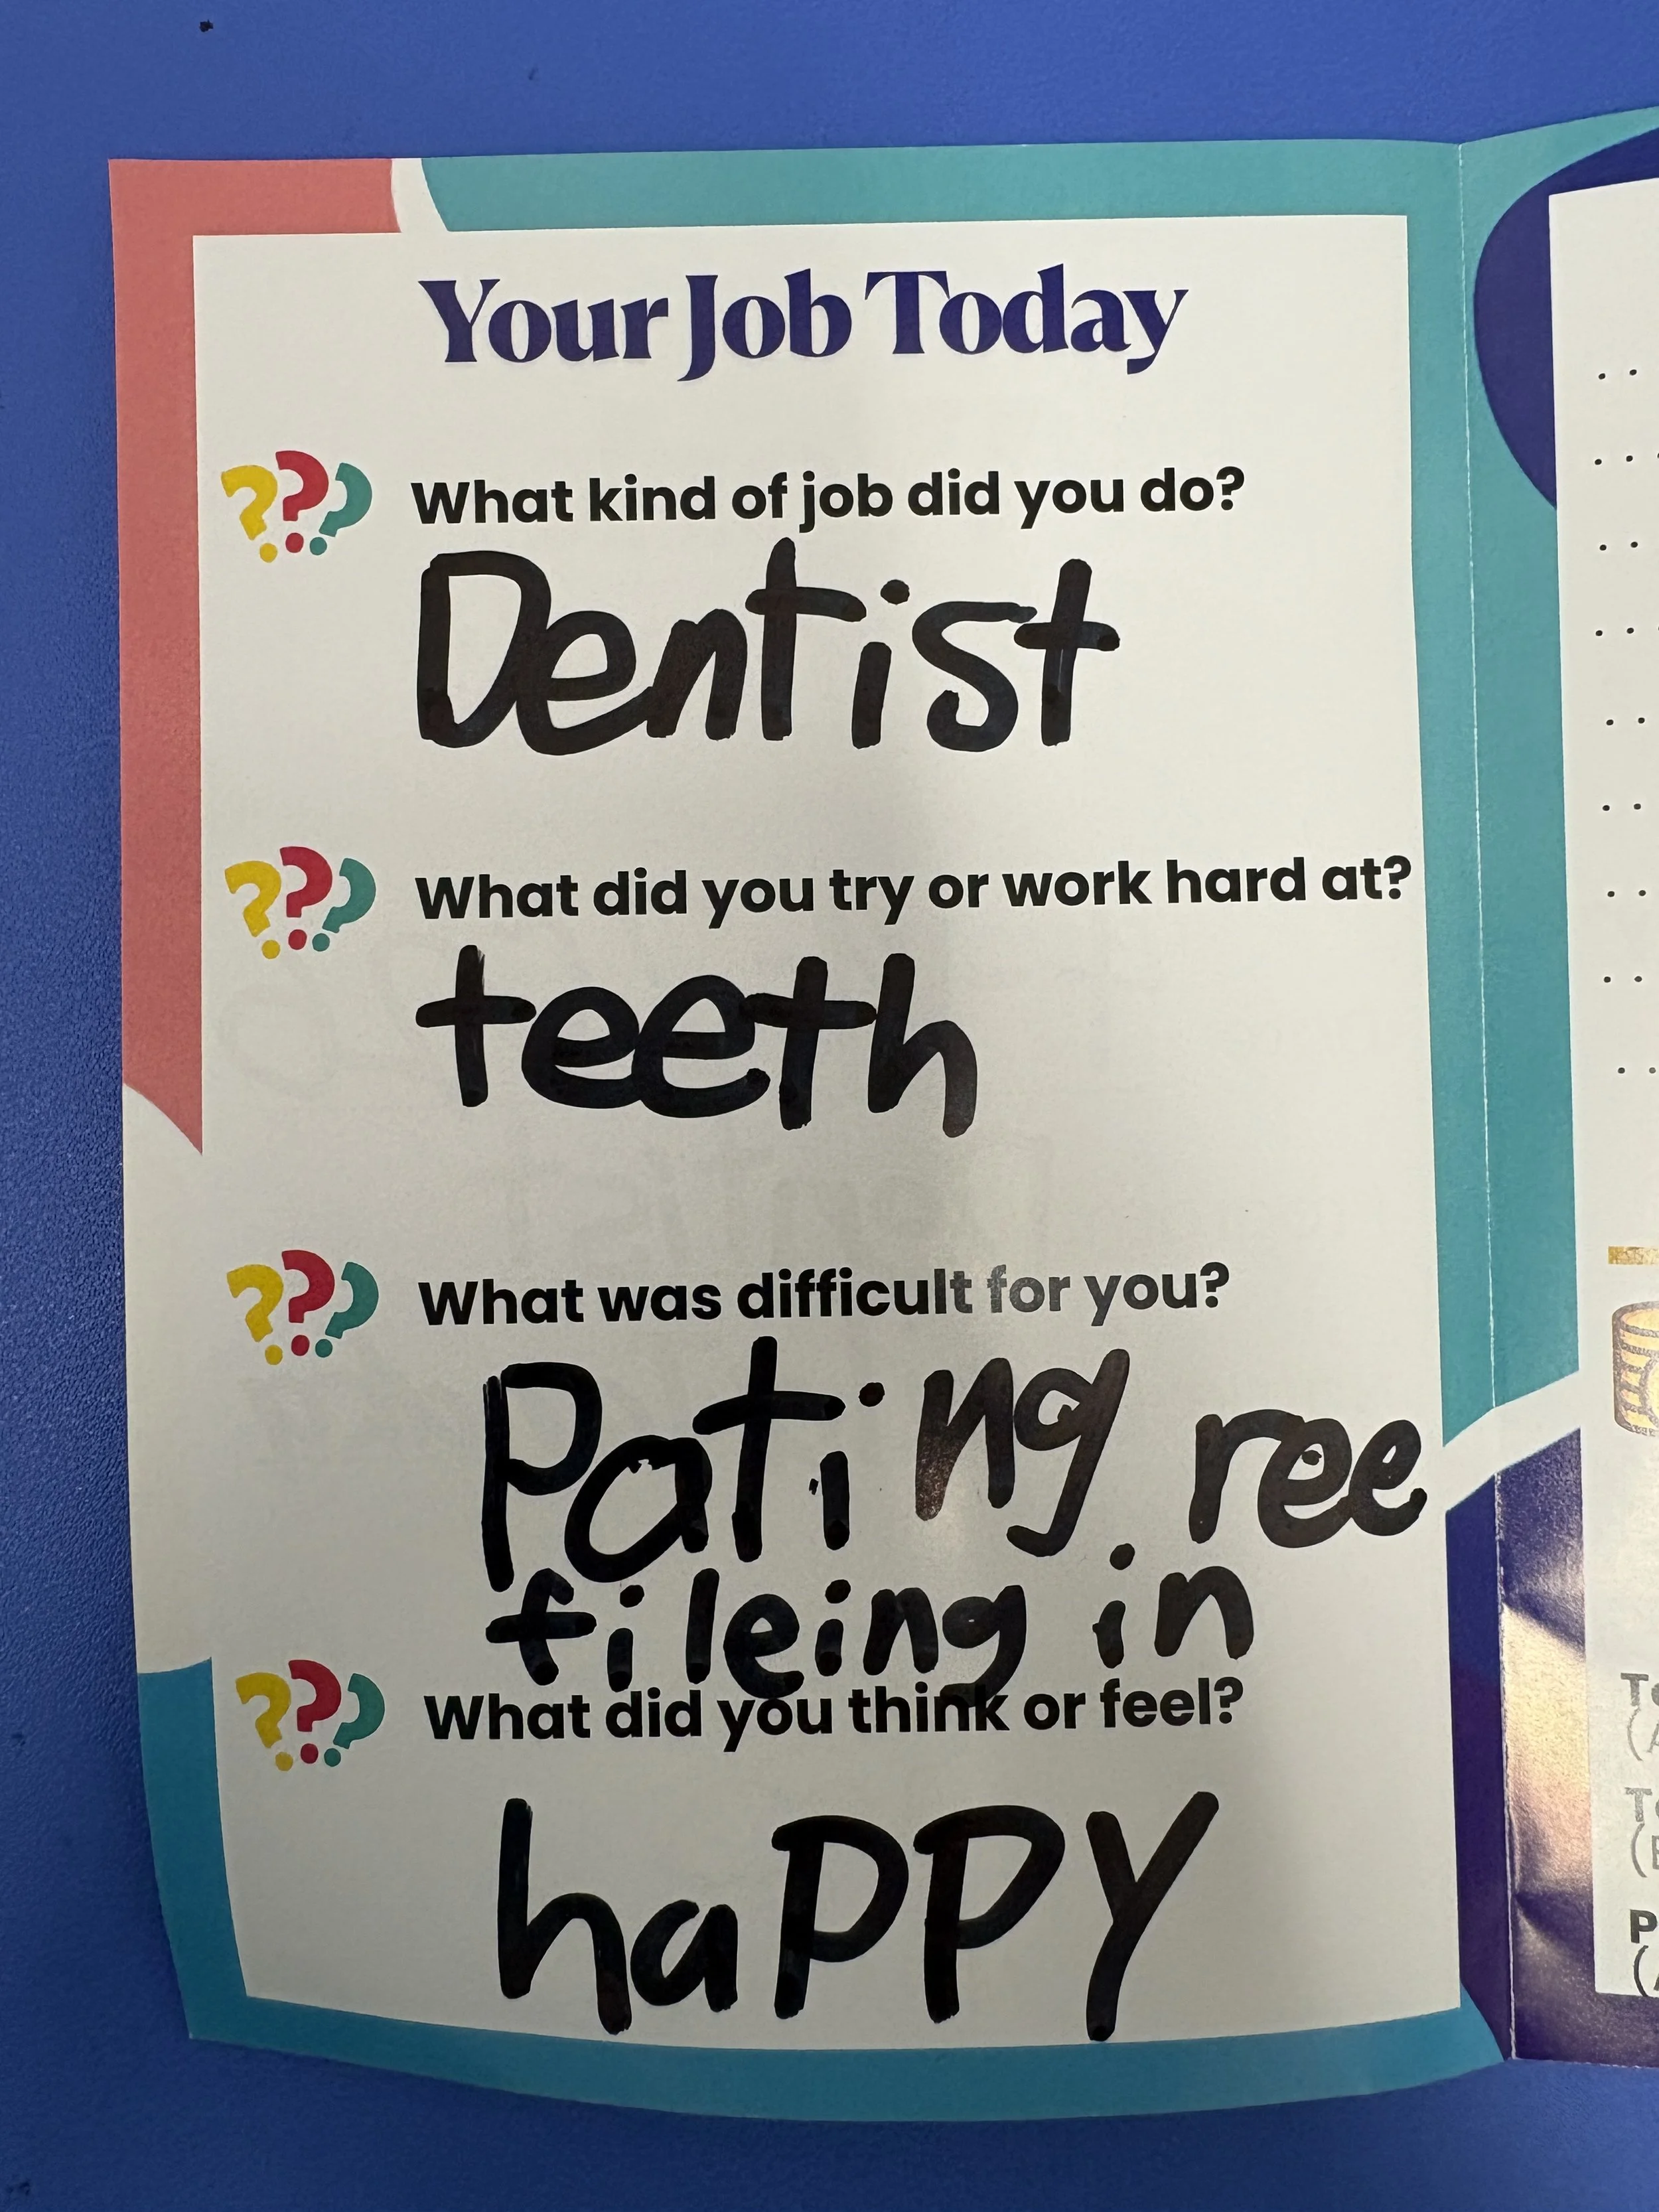 Your Job Today
What kind of job did you do?
Dentist
What did you try or work hard at?
teeth
What was difficult for you?
Pating ree
fileing in
What did you think or feel?
haPPY